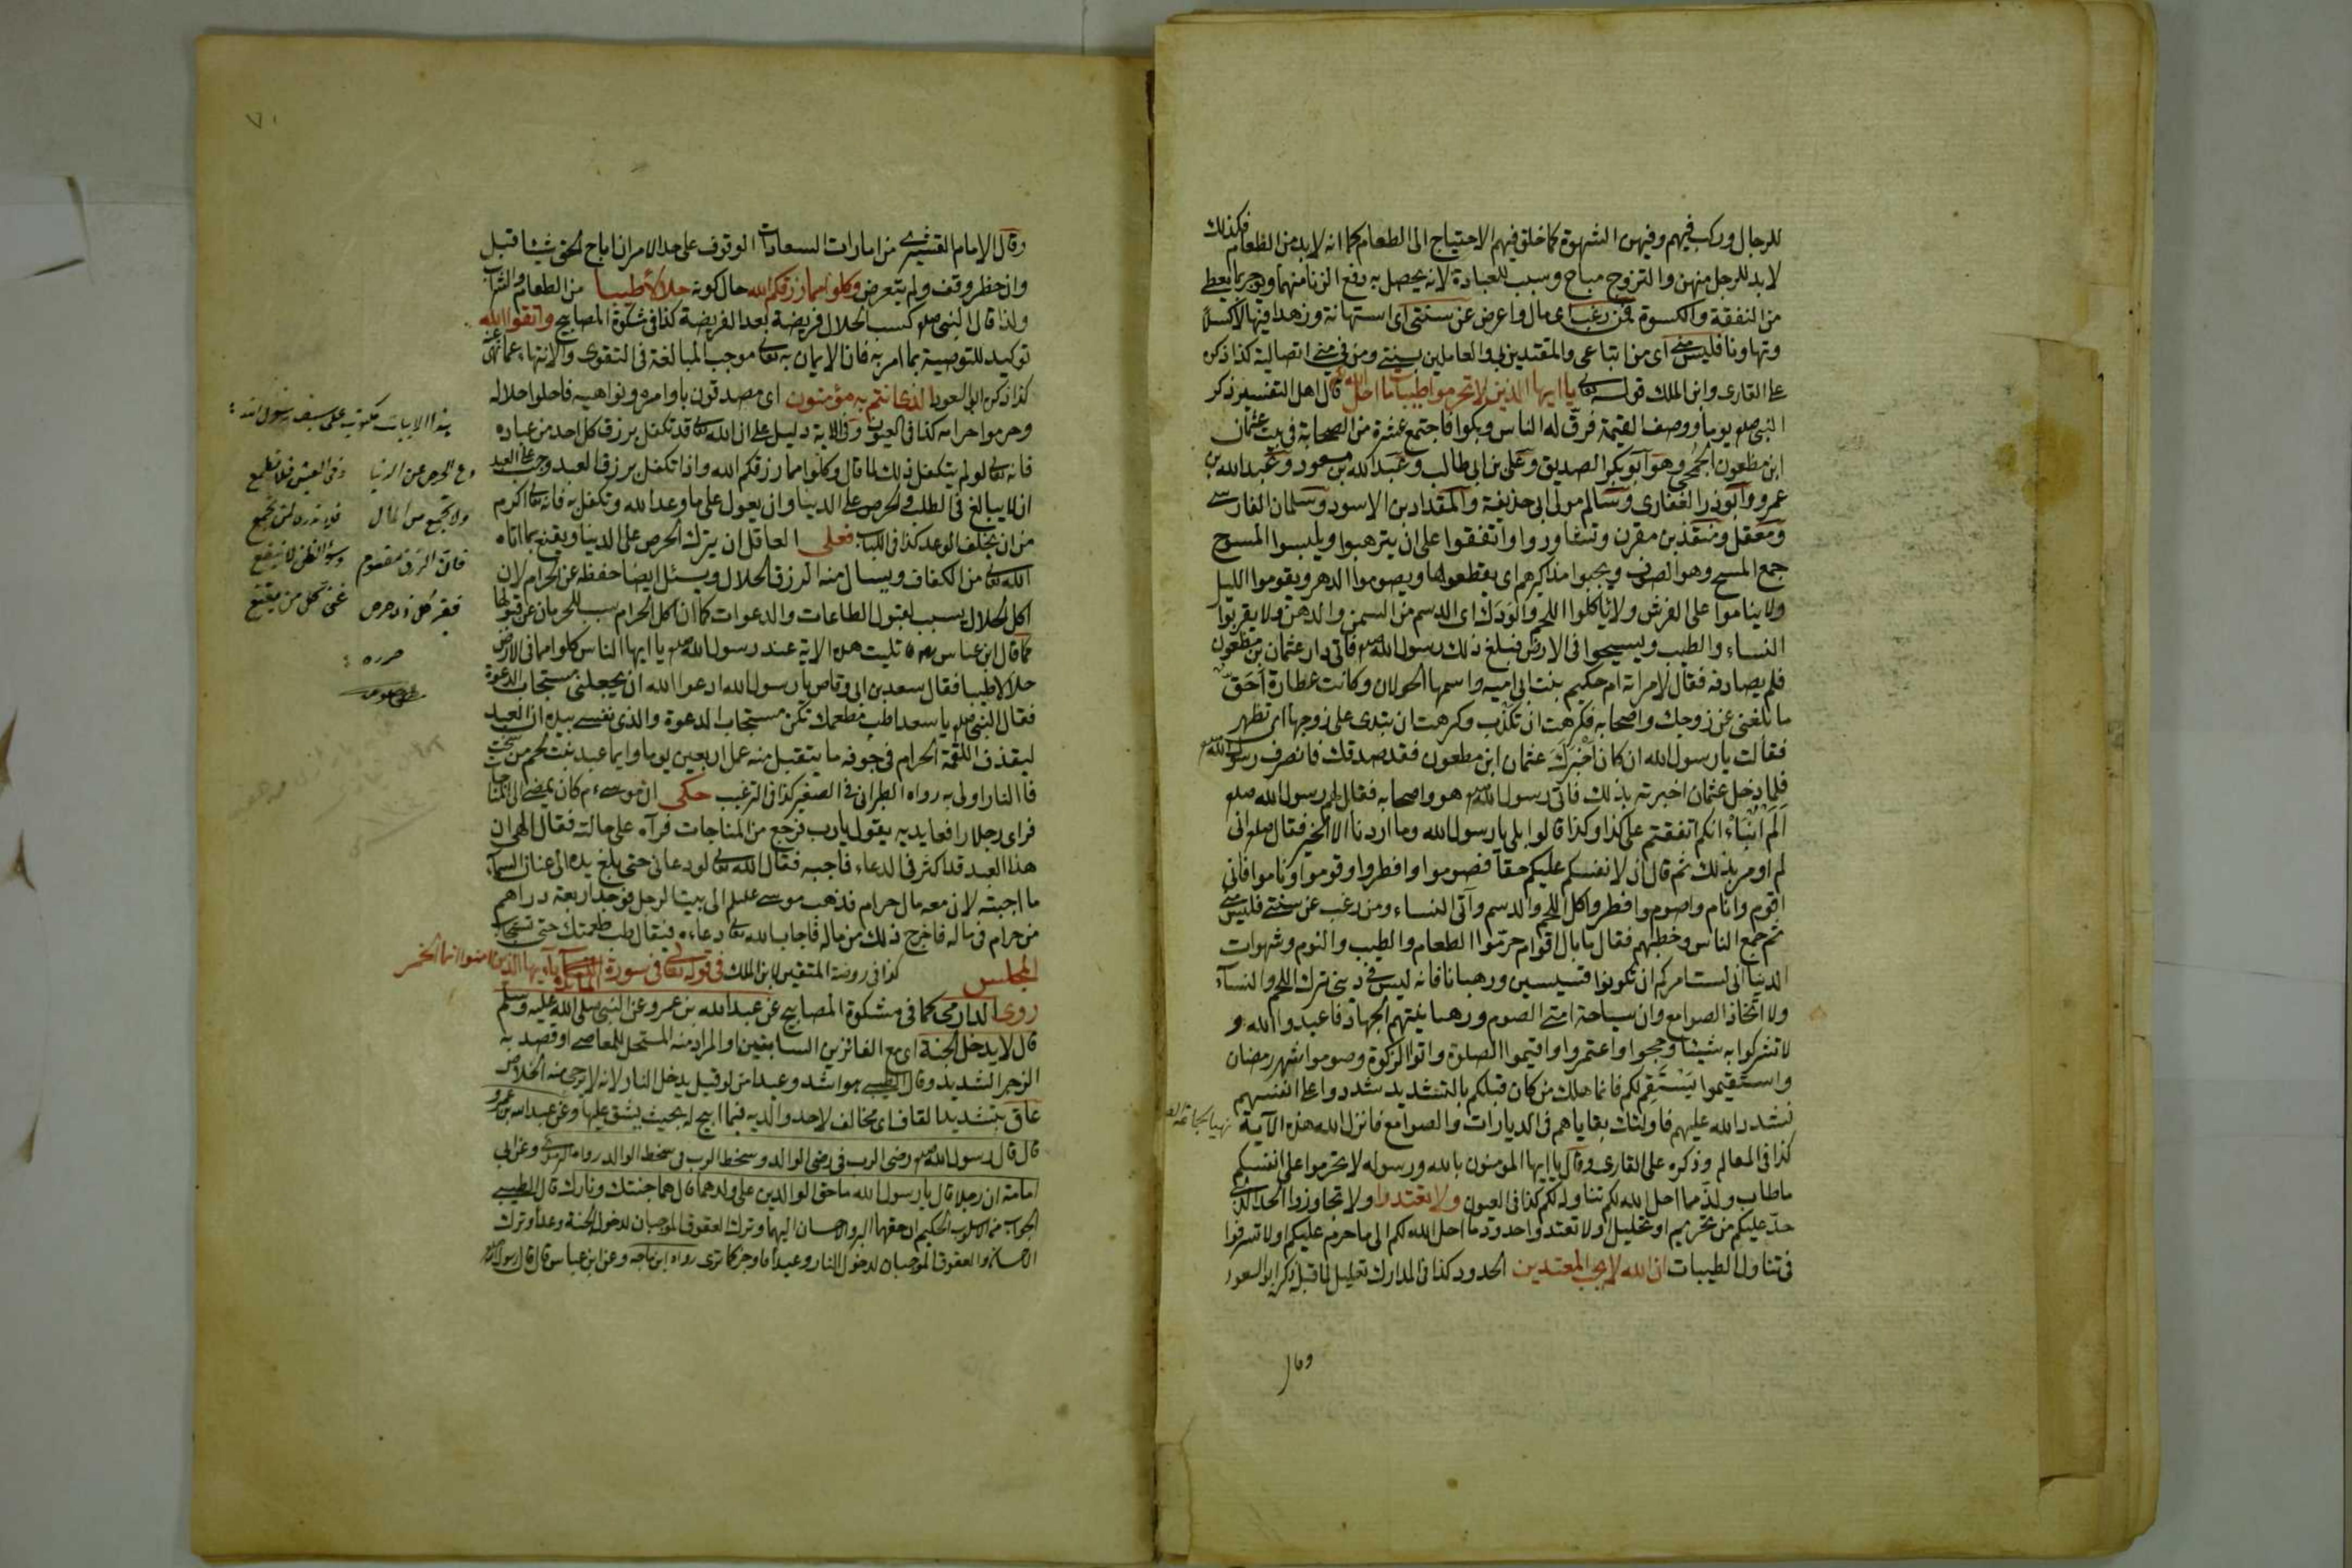 للرجال وركب فيهم وفيهن الشهوة كما خلق فيهم الاحتياج الى الطعام كما انه لا بد من الطعام فكذلك
لا بد للرجل منهن والتزوج مباح وسبب للعبادة لانه يحصل به دفع الزنا منهما ويوجر بما يعطى
من النفقة والكسوة فمن رغب اى مال واعرض عن سنتى اى استهانة وزهدا فيها لا كسلا
وتهاونا فليس منى اى من اتباعى والمقتدين بى والعاملين بسنتى ومن فى منى اتصالية كذا ذكره
على القارى وابن الملك قوله تعالى يا ايها الذين لا تحرموا طيبات ما احل الله لكم قال اهل التفسير ذكر
النبى صلعم يوما ووصف القيمة فرق له الناس وبكوا فاجتمع عشرة من الصحابة فى بيت عثمان
ابن مظعون الجمحى وهو ابو بكر الصديق وعلى بن ابى طالب وعبد الله بن مسعود وعبد الله بن
عمرو وابو ذر الغفارى وسالم مولى ابى حذيفة والمقداد بن الاسود وسلمان الفارسى
ومعقل ومنقذ بن مقرن وتشاوروا واتفقوا على ان يترهبوا ويلبسوا المسوح
جمع المسح وهو الصوف ويجبوا مذاكيرهم اى يقطعوها ويصوموا الدهر ويقوموا الليل
ولا يناموا على الفرش ولا يأكلوا اللحم والودك اى الدسم من السمن والدهن ولا يقربوا
النساء والطيب ويسيحوا فى الارض فبلغ ذلك رسول الله صلعم فاتى دار عثمان بن مظعون
فلم يصادفه فقال لامراته ام حكيم بنت ابى اميه واسمها الحولان وكانت عطارة احق
ما بلغنى عن زوجك واصحابه فكرهت ان تكذب وكرهت ان تبدى على زوجها اى تظهر
فقالت يا رسول الله ان كان اخبرك عثمان ابن مظعون فقد صدقك فانصرف رسول الله صلعم
فلما دخل عثمان اخبرته بذلك فاتى رسول الله صلعم هو واصحابه فقال لهم رسول الله صلعم
الم انباء انكم اتفقتم على كذا وكذا قالوا بلى يا رسول الله وما اردنا الا الخير فقال صلعم انى
لم اومر بذلك ثم قال ان لانفسكم عليكم حقا فصوموا وافطروا وقوموا وناموا فانى
اقوم وانام واصوم وافطر واكل اللحم والدسم وآتى النساء ومن رغب عن سنتى فليس منى
ثم جمع الناس وخطبهم فقال ما بال اقوام حرموا الطعام والطيب والنوم وشهوات
الدنيا انى لست امركم ان تكونوا قسيسين ورهبانا فانه ليس فى دينى ترك اللحم والنسآء
ولا اتخاذ الصوامع وان سياحة امتى الصوم ورهبانيتهم الجهاد فاعبدوا الله و
لا تشركوا به شيئا وحجوا واعتمروا واقيموا الصلوة واتوا الزكوة وصوموا شهر رمضان
واستقيموا يستقم لكم فانما هلك من كان قبلكم بالتشديد شددوا على انفسهم
فشدد الله عليهم فاولئك بقاياهم فى الديارات والصوامع فانزل الله هذه الآية
كذا فى المعالم وذكره على القارى وقال يا ايها المؤمنون بالله ورسوله لا تحرموا على انفسكم
ما طاب ولذ مما احل الله لكم تناوله لكم كذا فى العيون ولا تعتدوا ولا تجاوزوا الحد الذى
حد عليكم من تحريم او تحليل او لا تعتدوا حدود ما احل الله لكم الى ما حرم عليكم ولا تسرفوا
فى تناول الطيبات ان الله لا يحب المعتدين الحدود كذا فى المدارك تعليل لما قبله ذكره ابو السعود
وقال
٧٠
وقال الامام القشيرى من امارات السعادات الوقوف على حد الامر ان اباح الحق شيئا قبل
وان حظر وقف ولم يتعرض وكلوا مما رزقكم الله حال كونه حلالا طيبا من الطعام والشراب
ولذا قال النبى صلعم كسب الحلال فريضة بعد الفريضة كذا فى مشكوة المصابيح واتقوا الله
توكيد للتوصية بما امر به فان الايمان به تعالى موجب المبالغة فى التقوى والانتهاء عما نهى عنه
كذا ذكره ابو السعود الذى انتم به مؤمنون اى مصدقون باوامره ونواهيه فاحلوا حلاله
وحرموا حرامه كذا فى العيون وفى الاية دليل على ان الله تعالى قد تكفل برزق كل احد من عباده
فانه تعالى لو لم يتكفل ذلك لما قال وكلوا مما رزقكم الله واذا تكفل برزق العبد وجب على العبد
ان لا يبالغ فى الطلب والحرص على الدنيا وان يعول على ما وعد الله وتكفل به فانه تعالى اكرم
من ان يخلف الوعد كذا فى اللباب فعلى العاقل ان يترك الحرص على الدنيا ويقنع بما اتاه
الله تعالى من الكفاف ويسال منه الرزق الحلال ويسئل ايضا حفظه عن الحرام لان
اكل الحلال بسبب لقبول الطاعات والدعوات كما ان اكل الحرام سبب للحرمان عن قبولها
كما قال ابن عباس رضه تليت هذه الاية عند رسول الله صلعم يا ايها الناس كلوا مما فى الارض
حلالا طيبا فقال سعد بن ابى وقاص يا رسول الله ادعوا الله ان يجعلنى مستجاب الدعوة
فقال النبى صلعم يا سعد اطب مطعمك تكن مستجاب الدعوة والذى نفسى بيده ان العبد
ليقذف اللقمة الحرام فى جوفه ما يتقبل منه عمل اربعين يوما وايما عبد نبت لحمه من سحت
فالنار اولى به رواه الطبرانى فى الصغير كذا فى الترغيب حكى ان موسى عم كان يمضى الى المناجات
فراى رجلا رافعا يديه يقول يا رب فرجع من المناجات فرآه على حالته فقال الهى ان
هذا العبد قد اكثر فى الدعاء فاجبه فقال الله تعالى لو دعانى حتى بلغ يده الى عنان السمآء
ما اجبته لان معه مال حرام فذهب موسى عليلم الى بيت الرجل فوجد اربعة دراهم
من حرام فى ماله فاخرج ذلك من ماله فاجاب الله تعالى دعاءه فيقال طب طعمتك حتى تستجاب
المجلس كذا فى روضة المتقين لابن الملك فى قوله تعالى فى سورة المائدة يا ايها الذين امنوا انما الخمر
روى الدارمى كما فى مشكوة المصابيح عن عبد الله بن عمرو عن النبى صلى الله عليه وسلم
قال لا يدخل الجنة اى مع الفائزين السابقين او المراد منه المستحل للمعاصى او قصد به
الزجر الشديد وقال الطيبى هو اشد وعيدا من لو قيل يدخل النار لانه لا يرجى منه الخلاص
عاق بتشديد القاف اى مخالف لاحد والديه فيما ابيح له بحيث يشق عليها وعن عبد الله بن عمرو
قال قال رسول الله صلعم رضى الرب فى رضى الوالد وسخط الرب فى سخط الوالد رواه الترمذى وعن ابى
امامة ان رجلا قال يا رسول الله ما حق الوالدين على ولدهما قال هما جنتك ونارك قال الطيبى
الجواب من الاسلوب الحكيم اى حقهما البر والاحسان اليهما وترك العقوق الموجبان لدخول الجنة وعدا وترك
الاحسان والعقوق الموجبان لدخول النار وعيدا فاوجز كما ترى رواه ابن ماجه وعن ابن عباس قال قال رسول الله صلعم
هذا الابيات مكتوب على سيف رسول الله
دع الحرص عن الدنيا وفى العيش فلا تطمع
ولا تجمع من المال فلا تدرى لمن تجمع
فان الرزق مقسوم وسوء الظن لا ينفع
فقير كل ذى حرص غنى كل من يقنع
حرره